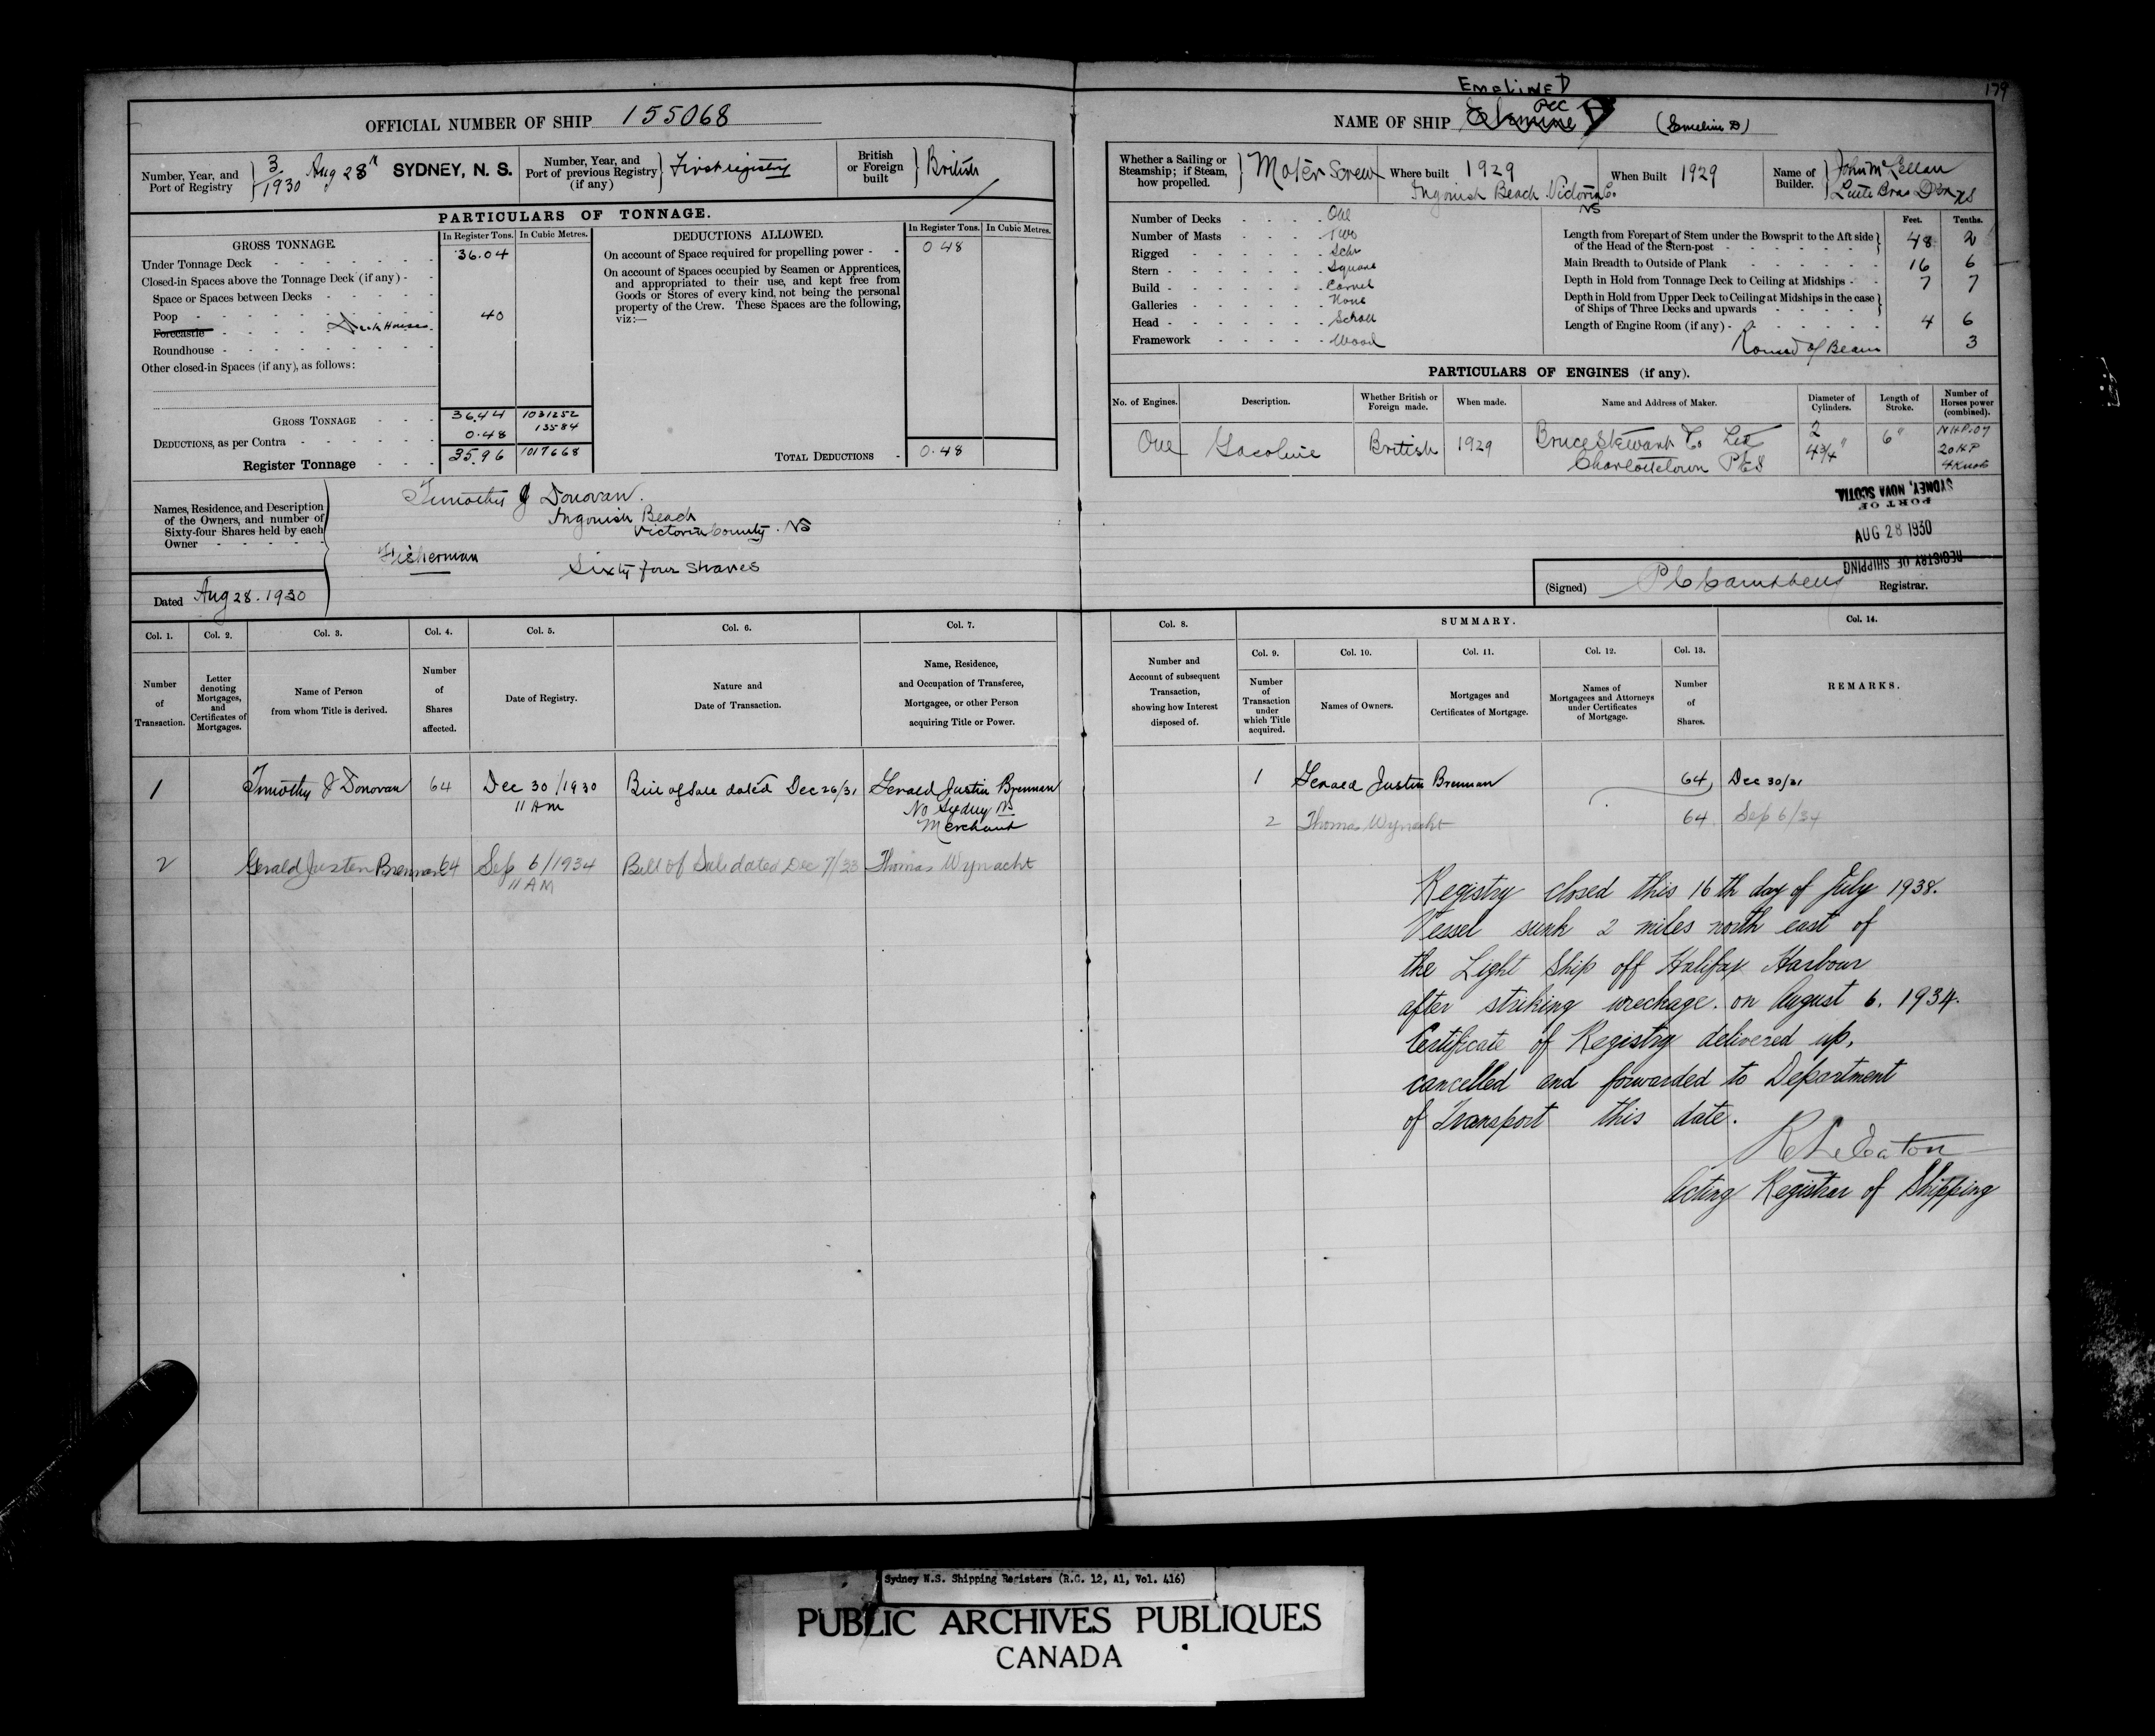 OFFICIAL NUMBER OF SHIP 155068
Number, Year, and Port of Registry 3/1930 Aug 28 SYDNEY, N. S.
Number, Year, and Port of previous Registry (if any) First registry
British or Foreign built British
PARTICULARS OF TONNAGE.
GROSS TONNAGE.
In Register Tons. In Cubic Metres.
Under Tonnage Deck 36.04
Closed-in Spaces above the Tonnage Deck (if any)
Space or Spaces between Decks
Poop 40
Forecastle Deck House
Roundhouse
Other closed-in Spaces (if any), as follows:
GROSS TONNAGE 36.44 1031252
DEDUCTIONS, as per Contra 0.48 13584
Register Tonnage 35.96 1017668
DEDUCTIONS ALLOWED.
In Register Tons. In Cubic Metres.
On account of Space required for propelling power 0 48
On account of Spaces occupied by Seamen or Apprentices,
and appropriated to their use, and kept free from
Goods or Stores of every kind, not being the personal
property of the Crew. These Spaces are the following,
viz:—
TOTAL DEDUCTIONS 0.48
Names, Residence, and Description
of the Owners, and number of
Sixty-four Shares held by each
Owner
Timothy J Donovan.
Ingonish Beach
Victoria County. NS
Fisherman Sixty four Shares
Dated Aug 28. 1930
Col. 1. Col. 2. Col. 3. Col. 4. Col. 5. Col. 6. Col. 7.
Number of Transaction.
Letter denoting Mortgages, and Certificates of Mortgages.
Name of Person from whom Title is derived.
Number of Shares affected.
Date of Registry.
Nature and Date of Transaction.
Name, Residence, and Occupation of Transferee, Mortgagee, or other Person acquiring Title or Power.
1 Timothy J Donovan 64 Dec 30/1930 Bill of Sale dated Dec 26/31 Gerald Justin Brennan
11 AM No Sydney NS
Merchant
2 Gerald Justin Brennan 64 Sep 6/1934 Bill of Sale dated Dec 7/33 Thomas Wynacht
11 AM
179
EMELINE D
NAME OF SHIP (Emeline D)
Whether a Sailing or Steamship; if Steam, how propelled. Motor Screw
Where built 1929
Ingonish Beach Victoria Co.
NS
When Built 1929
Name of Builder. John McLellan
Number of Decks One
Number of Masts Two
Rigged Schr
Stern Square
Build Carvel
Galleries None
Head Scroll
Framework Wood
Feet. Tenths.
Length from Forepart of Stem under the Bowsprit to the Aft side of the Head of the Stern-post 48 2
Main Breadth to Outside of Plank 16 6
Depth in Hold from Tonnage Deck to Ceiling at Midships 7 7
Depth in Hold from Upper Deck to Ceiling at Midships in the case of Ships of Three Decks and upwards
Length of Engine Room (if any) 4 6
Round of Beam 3
PARTICULARS OF ENGINES (if any).
No. of Engines. Description. Whether British or Foreign made. When made. Name and Address of Maker. Diameter of Cylinders. Length of Stroke. Number of Horses power (combined).
One Gasoline British 1929 Bruce Stewart Co Ltd 2 6" NHP.07
Charlottetown PEI 4¾" 20 HP
4 Knots
PORT OF
SYDNEY, NOVA SCOTIA
AUG 28 1930
REGISTRY OF SHIPPING
(Signed) P C Campbell Registrar.
SUMMARY.
Col. 8. Col. 9. Col. 10. Col. 11. Col. 12. Col. 13. Col. 14.
Number and Account of subsequent Transaction, showing how Interest disposed of.
Number of Transaction under which Title acquired.
Names of Owners.
Mortgages and Certificates of Mortgage.
Names of Mortgagees and Attorneys under Certificates of Mortgage.
Number of Shares.
REMARKS.
1 Gerald Justin Brennan 64 Dec 30/31
2 Thomas Wynacht 64 Sep 6/34
Registry closed this 16th day of July 1938.
Vessel sunk 2 miles north east of
the Light Ship off Halifax Harbour
after striking wreckage. on August 6. 1934.
Certificate of Registry delivered up,
cancelled and forwarded to Department
of Transport this date.
Acting Registrar of Shipping
Sydney N.S. Shipping Registers (R.G. 12, A1, Vol. 416)
PUBLIC ARCHIVES PUBLIQUES
CANADA